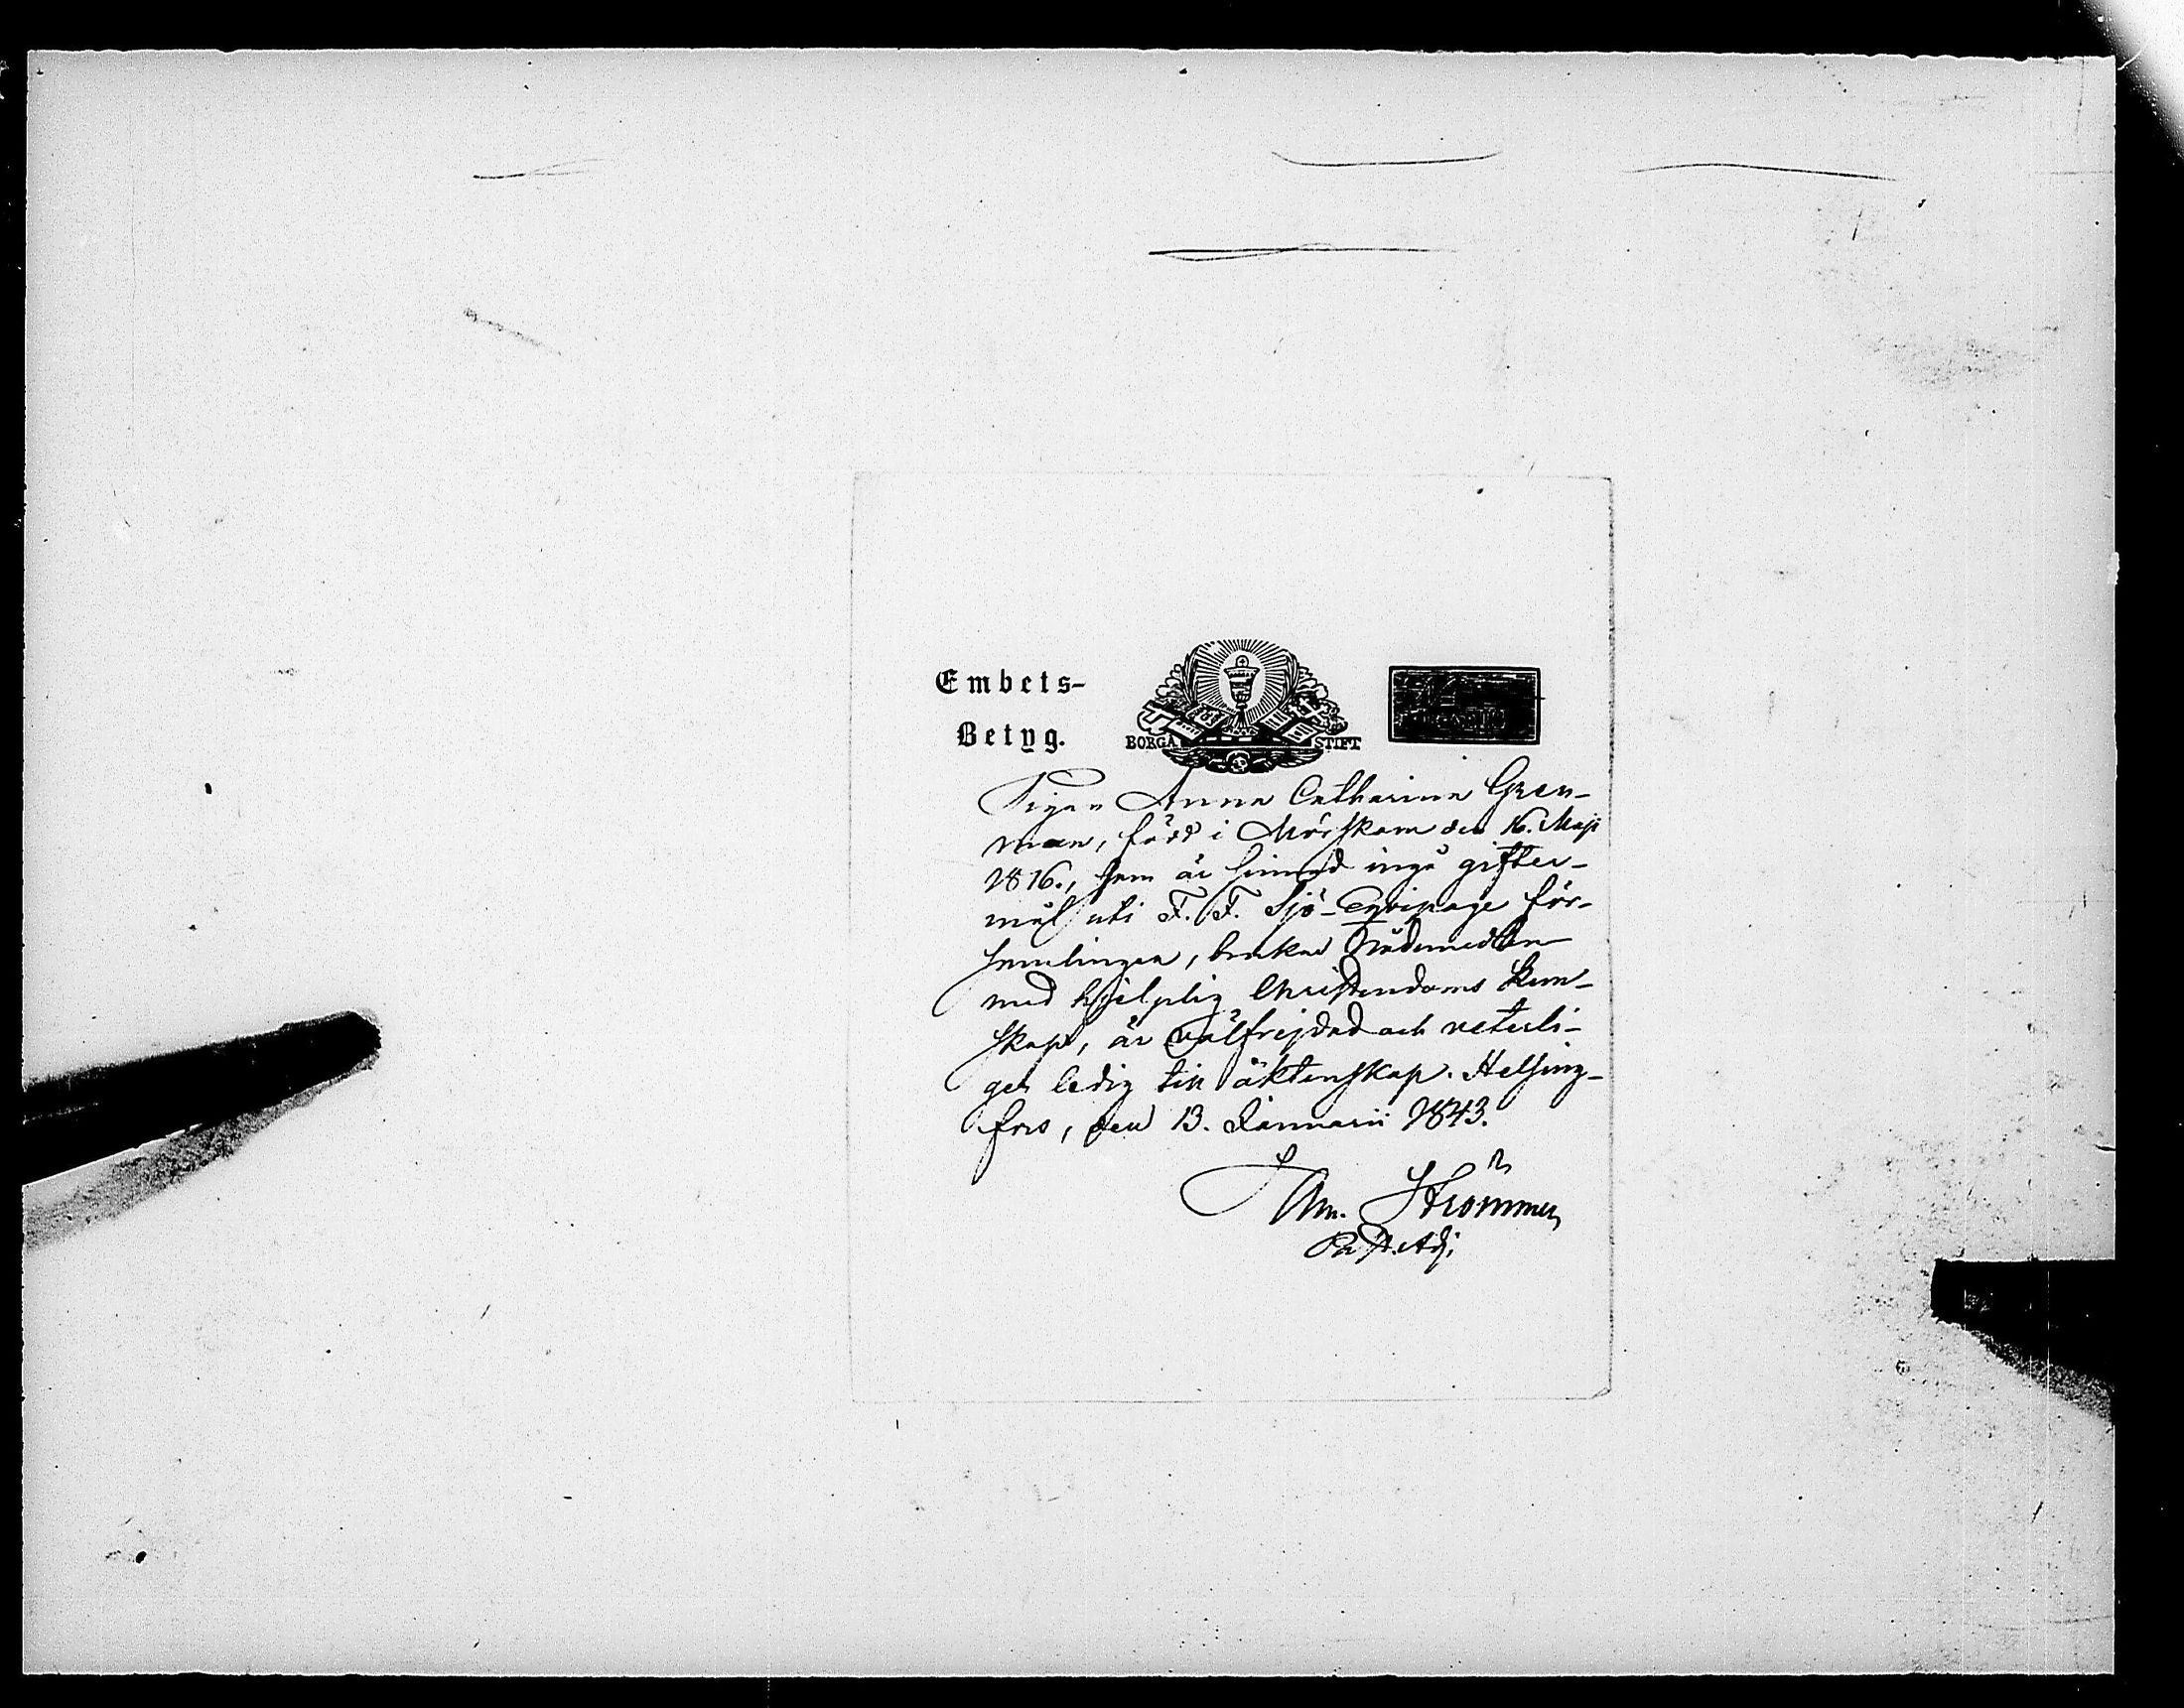 Embets-
Betyg.
BORGÅ STIFT
Pigan Anna Catharina Gren-
man, född i Mörskom den 16. Maji
1816., som är sinnad ingå gifter-
mål uti F. F. Sjö-Equipage för-
samlingen, brukar Nådemedlen
med hjelplig Christendoms kun-
skap, är välfrejdad och veterli-
gen ledig till äktenskap. Helsing-
fors, den 13. Januarii 1843.
Strömmer
Adj.